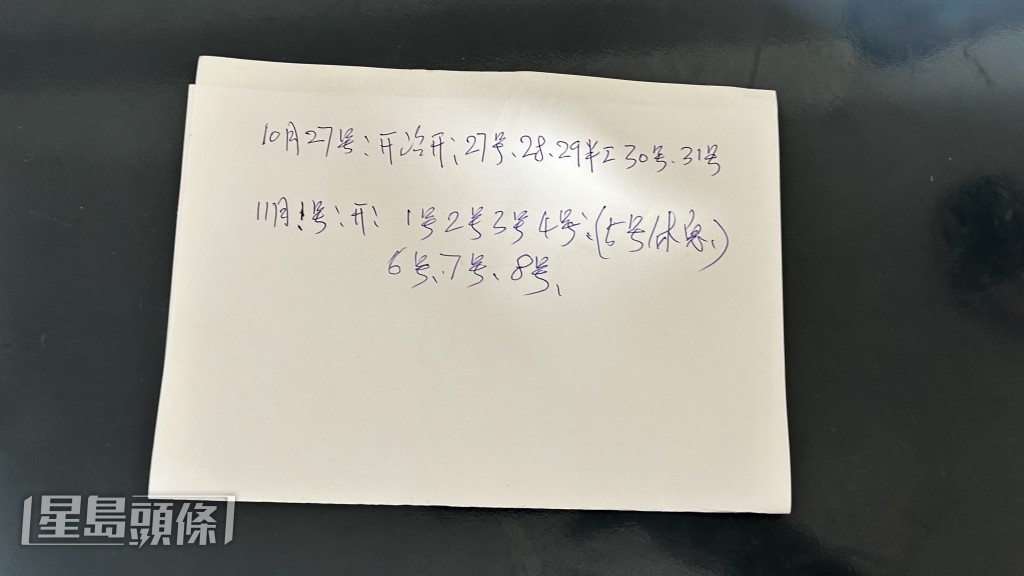 10月27号:开冶开:27号、28、29半工30号、31号
11月1号:开: 1号2号3号4号:(5号休息、)
6号、7号、8号、
星島頭條